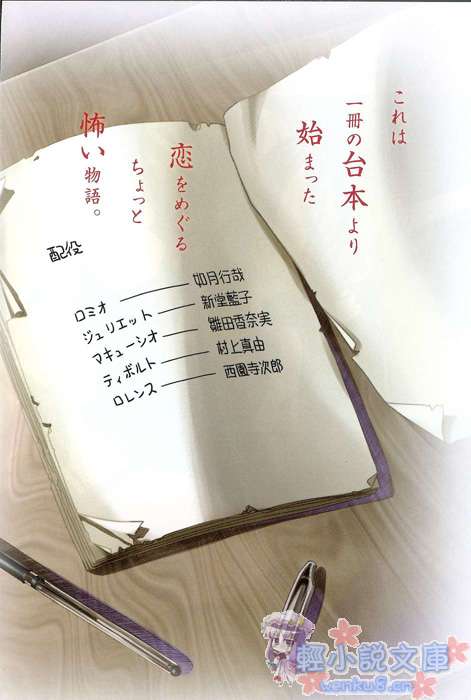 これは
一冊の台本より
始まった
恋をめぐる
ちょっと
怖い物語。
配役
ロミオ――如月行哉
ジュリエット――新堂藍子
マキューシオ――雛田香奈実
ティボルト――村上真由
ロレンス――西園寺次郎
輕小說文庫
www.wenku8.cn